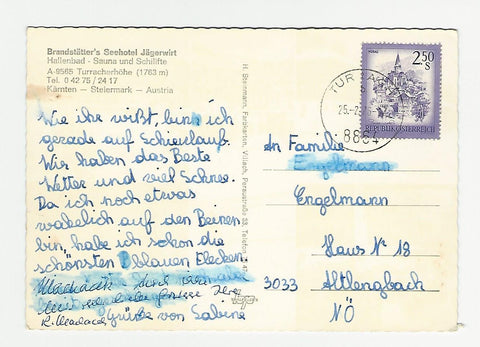 Brandstätter's Seehotel Jägerwirt
Hallenbad - Sauna und Schilifte
A-9565 Turracherhöhe (1763 m)
Tel. 0 42 75 / 24 17
Kärnten – Steiermark – Austria
Wie ihr wißt, bin ich
gerade auf Schienlauf.
Wir haben das Beste
Wetter und viel Schnee.
Da ich noch etwas
wakelich auf den Beinen
bin, habe ich schon die
schönsten blauen Flecken.
Grüße von Sabine
H. Steinmann, Farbkarten, Villach, Peraustraße 33, Telefon
MURAU
2.50
S
REPUBLIK ÖSTERREICH
TUR
25.-2
8864
An Familie
Engelmann
Engelmann
Haus N° 13
3033 Altlengbach
NÖ